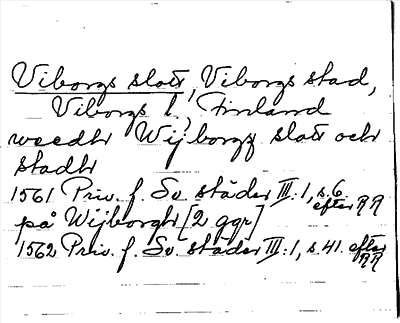 Viborgs slott, Viborgs stad,
Viborgs l., Finland
weedh Wijborgz slott och
stadh
1561 Priv. f. Sv. städer III:1, s. 6 efter RR
på Wijborgh [2 ggr]
1562 Priv. f. Sv. städer III:1, s. 41. efter RR